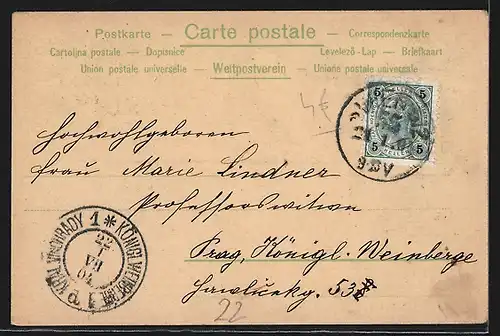 Postkarte – Carte postale – Correspondenzkarte
Cartolina postale – Dopisnice Levelező-Lap – Briefkaart
Union postale universelle – Weltpostverein – Unione postale universale
4€
5 5
5 5
Hochwohlgeboren
Frau Marie Lindner
Professorswitwe
Prag, Königl. Weinberge
53
22
KRÁL. VINOHRADY 1 * KÖNIGL. WEINBERGE 1
22
VII
04